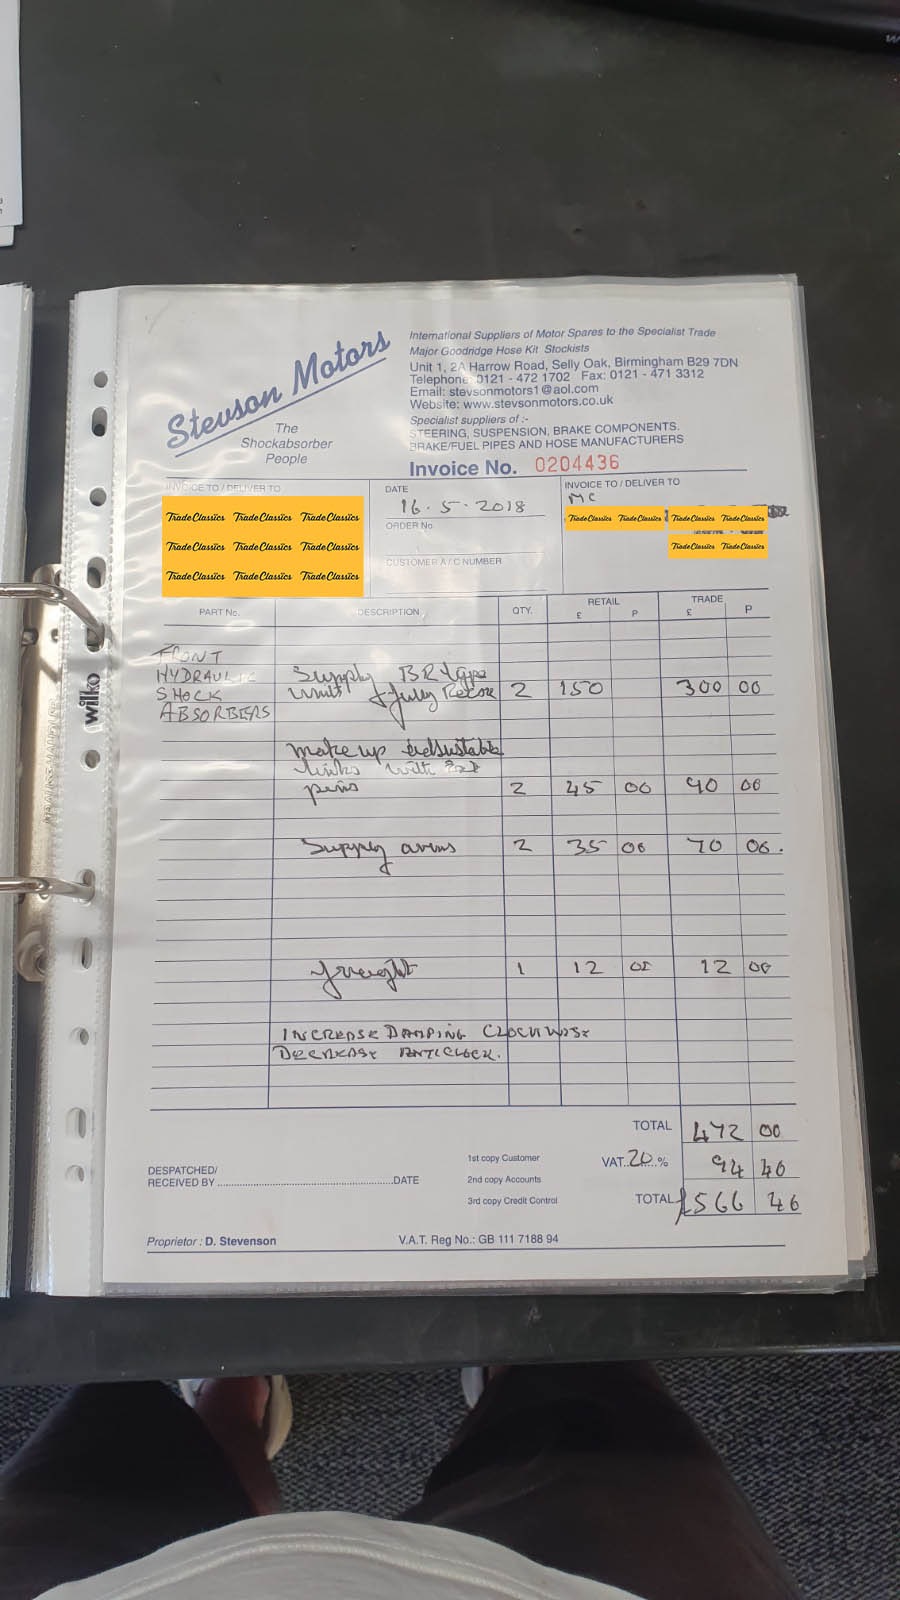 Stevson Motors
The
Shockabsorber
People
International Suppliers of Motor Spares to the Specialist Trade
Major Goodridge Hose Kit Stockists
Unit 1, 2A Harrow Road, Selly Oak, Birmingham B29 7DN
Telephone 0121 - 472 1702 Fax: 0121 - 471 3312
Email: stevsonmotors1@aol.com
Website: www.stevsonmotors.co.uk
Specialist suppliers of :-
STEERING, SUSPENSION, BRAKE COMPONENTS.
BRAKE/FUEL PIPES AND HOSE MANUFACTURERS
Invoice No. 0204436
INVOICE TO / DELIVER TO
TradeClassics TradeClassics TradeClassics
TradeClassics TradeClassics TradeClassics
TradeClassics TradeClassics TradeClassics
DATE
16.5.2018
ORDER No.
CUSTOMER A / C NUMBER
INVOICE TO / DELIVER TO
MC
TradeClassics TradeClassics TradeClassics TradeClassics
TradeClassics TradeClassics
PART No. DESCRIPTION QTY. RETAIL £ P TRADE £ P
FRONT
HYDRAULIC Supply BR type
SHOCK fully 2 150 300 00
ABSORBERS
make up adjustable
links with
pins 2 45 00 90 00
Supply arms 2 35 00 70 00.
freight 1 12 00 12 00
INCREASE DAMPING CLOCKWISE
DECREASE ANTICLOCK.
TOTAL 472 00
1st copy Customer VAT 20 % 94 40
DESPATCHED/
RECEIVED BY DATE
2nd copy Accounts
3rd copy Credit Control TOTAL £566 40
Proprietor : D. Stevenson V.A.T. Reg No.: GB 111 7188 94
wilko